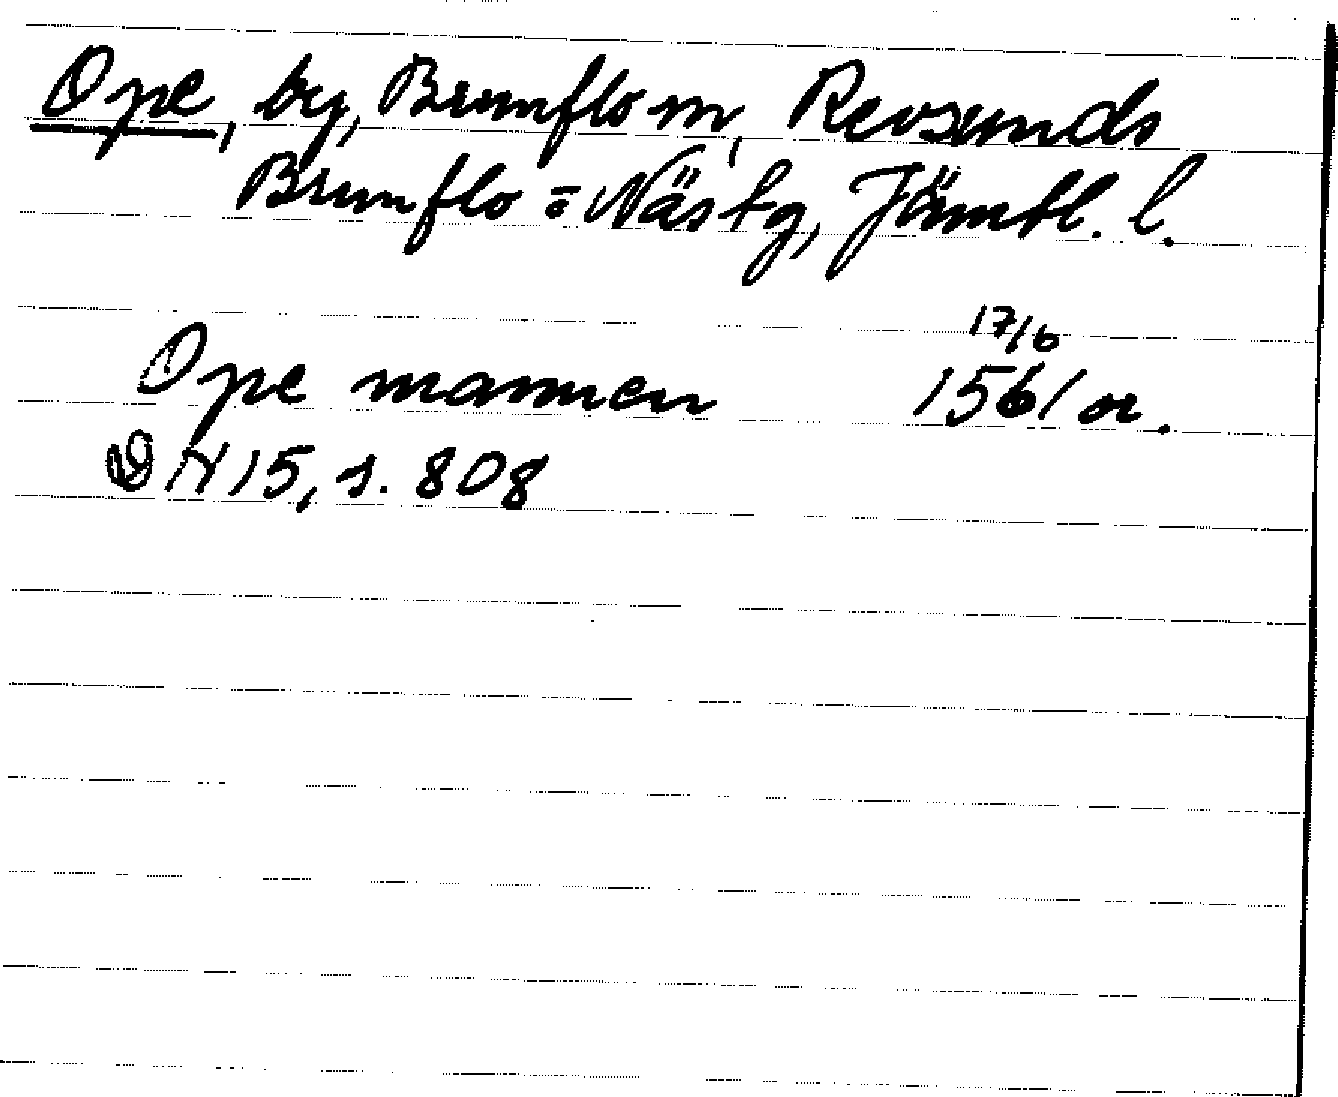 Ope, by, Brunflo sn, Revsunds
Brunflo = Näs tg, Jämtl. l.
17/6
Ope mannen 1561 or.
H 15, s. 808